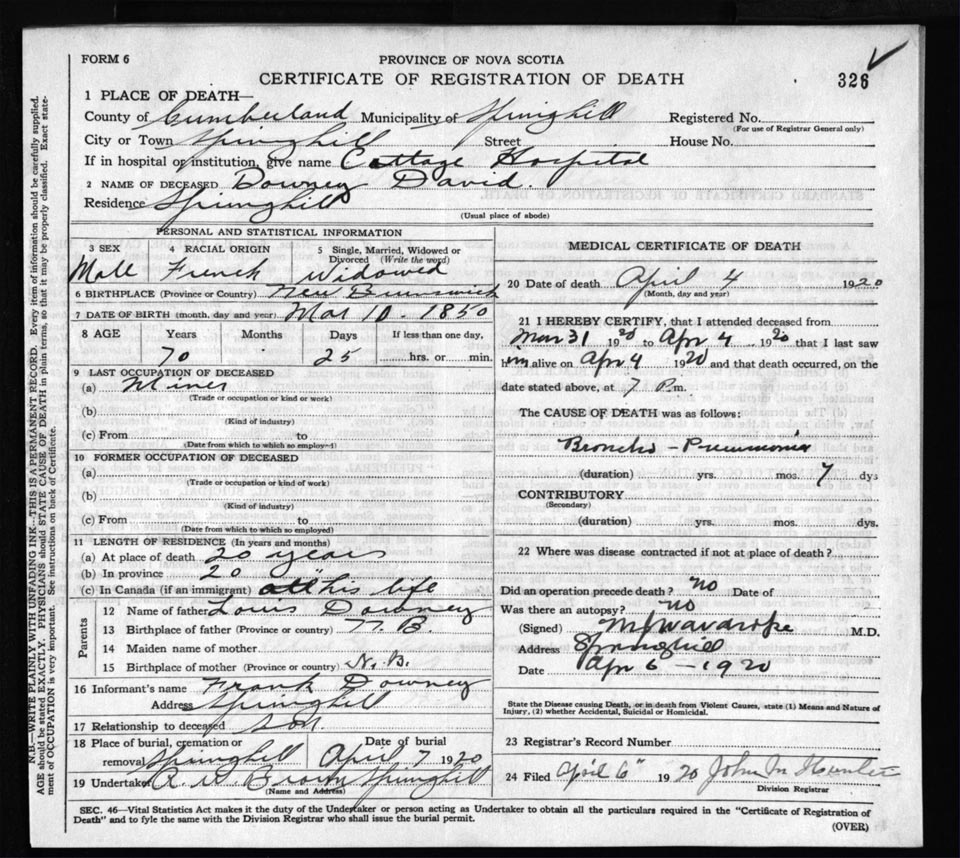 FORM 6
PROVINCE OF NOVA SCOTIA
CERTIFICATE OF REGISTRATION OF DEATH
326
1 PLACE OF DEATH—
County of Cumberland Municipality of Springhill Registered No.
(For use of Registrar General only)
City or Town Springhill Street House No.
If in hospital or institution, give name Cottage Hospital
2 NAME OF DECEASED Downey David.
Residence Springhill
(Usual place of abode)
PERSONAL AND STATISTICAL INFORMATION
3 SEX 4 RACIAL ORIGIN 5 Single, Married, Widowed or Divorced (Write the word)
Male French Widowed
6 BIRTHPLACE (Province or Country) New Brunswick
7 DATE OF BIRTH (month, day and year) Mar 10. 1850
8 AGE Years Months Days If less than one day,
70 25 hrs. or min.
9 LAST OCCUPATION OF DECEASED
(a) Miner
(Trade or occupation or kind or work)
(b)
(Kind of industry)
(c) From to
(Date from which to which so employed)
10 FORMER OCCUPATION OF DECEASED
(a)
(Trade or occupation or kind of work)
(b)
(Kind of industry)
(c) From to
(Date from which to which so employed)
11 LENGTH OF RESIDENCE (In years and months)
(a) At place of death 20 years
(b) In province 20 "
(c) In Canada (if an immigrant) all his life
Parents
12 Name of father Louis Downey
13 Birthplace of father (Province or country) N. B.
14 Maiden name of mother
15 Birthplace of mother (Province or country) N. B.
16 Informant's name Frank Downey
Address Springhill
17 Relationship to deceased son
18 Place of burial, cremation or removal Springhill Date of burial April 7 1920
19 Undertaker Brown Springhill
(Name and Address)
MEDICAL CERTIFICATE OF DEATH
20 Date of death April 4 1920
(Month, day and year)
21 I HEREBY CERTIFY, that I attended deceased from
Mar 31 1920 to Apr 4 1920 that I last saw
him alive on Apr 4 1920 and that death occurred, on the
date stated above, at 7 P.m.
The CAUSE OF DEATH was as follows:
Broncho-Pneumonia
(duration) yrs. mos. 7 dys
CONTRIBUTORY
(Secondary)
(duration) yrs. mos. dys.
22 Where was disease contracted if not at place of death?
Did an operation precede death? no Date of
Was there an autopsy? no
(Signed) M.D.
Address Springhill
Date Apr 6 - 1920
State the Disease causing Death, or in death from Violent Causes, state (1) Means and Nature of
Injury, (2) whether Accidental, Suicidal or Homicidal.
23 Registrar's Record Number
24 Filed April 6" 1920 John
Division Registrar
SEC. 46—Vital Statistics Act makes it the duty of the Undertaker or person acting as Undertaker to obtain all the particulars required in the "Certificate of Registration of
Death" and to fyle the same with the Division Registrar who shall issue the burial permit.
(OVER)
N.B.—WRITE PLAINLY WITH UNFADING INK—THIS IS A PERMANENT RECORD. Every item of information should be carefully supplied.
AGE should be stated EXACTLY. PHYSICIANS should STATE CAUSE OF DEATH in plain terms, so that it may be properly classified. Exact state-
ment of OCCUPATION is very important. See instructions on back of Certificate.